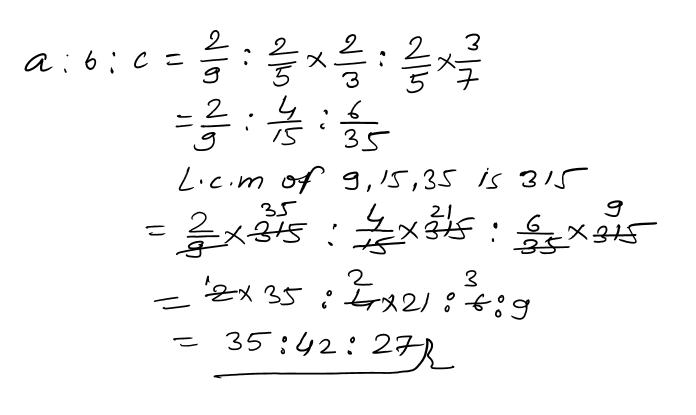 a : b : c = 2/9 : 2/5 × 2/3 : 2/5 × 3/7
= 2/9 : 4/15 : 6/35
L.c.m of 9,15,35 is 315
= 2/9 × 315 35 : 4/15 × 315 21 : 6/35 × 315 9
= 2 1 × 35 : 4 2 × 21 : 6 3 : 9
= 35 : 42 : 27